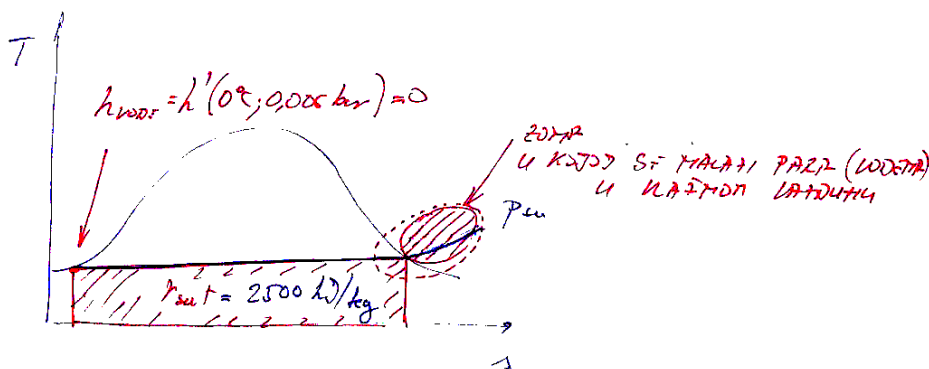 T
h vode = h'(0°C; 0,006 bar) = 0
ZONA
U KOJOJ SE NALAZI PARA (VODENA)
U VLAŽNOM VAZDUHU
r sut = 2500 kJ/kg
s